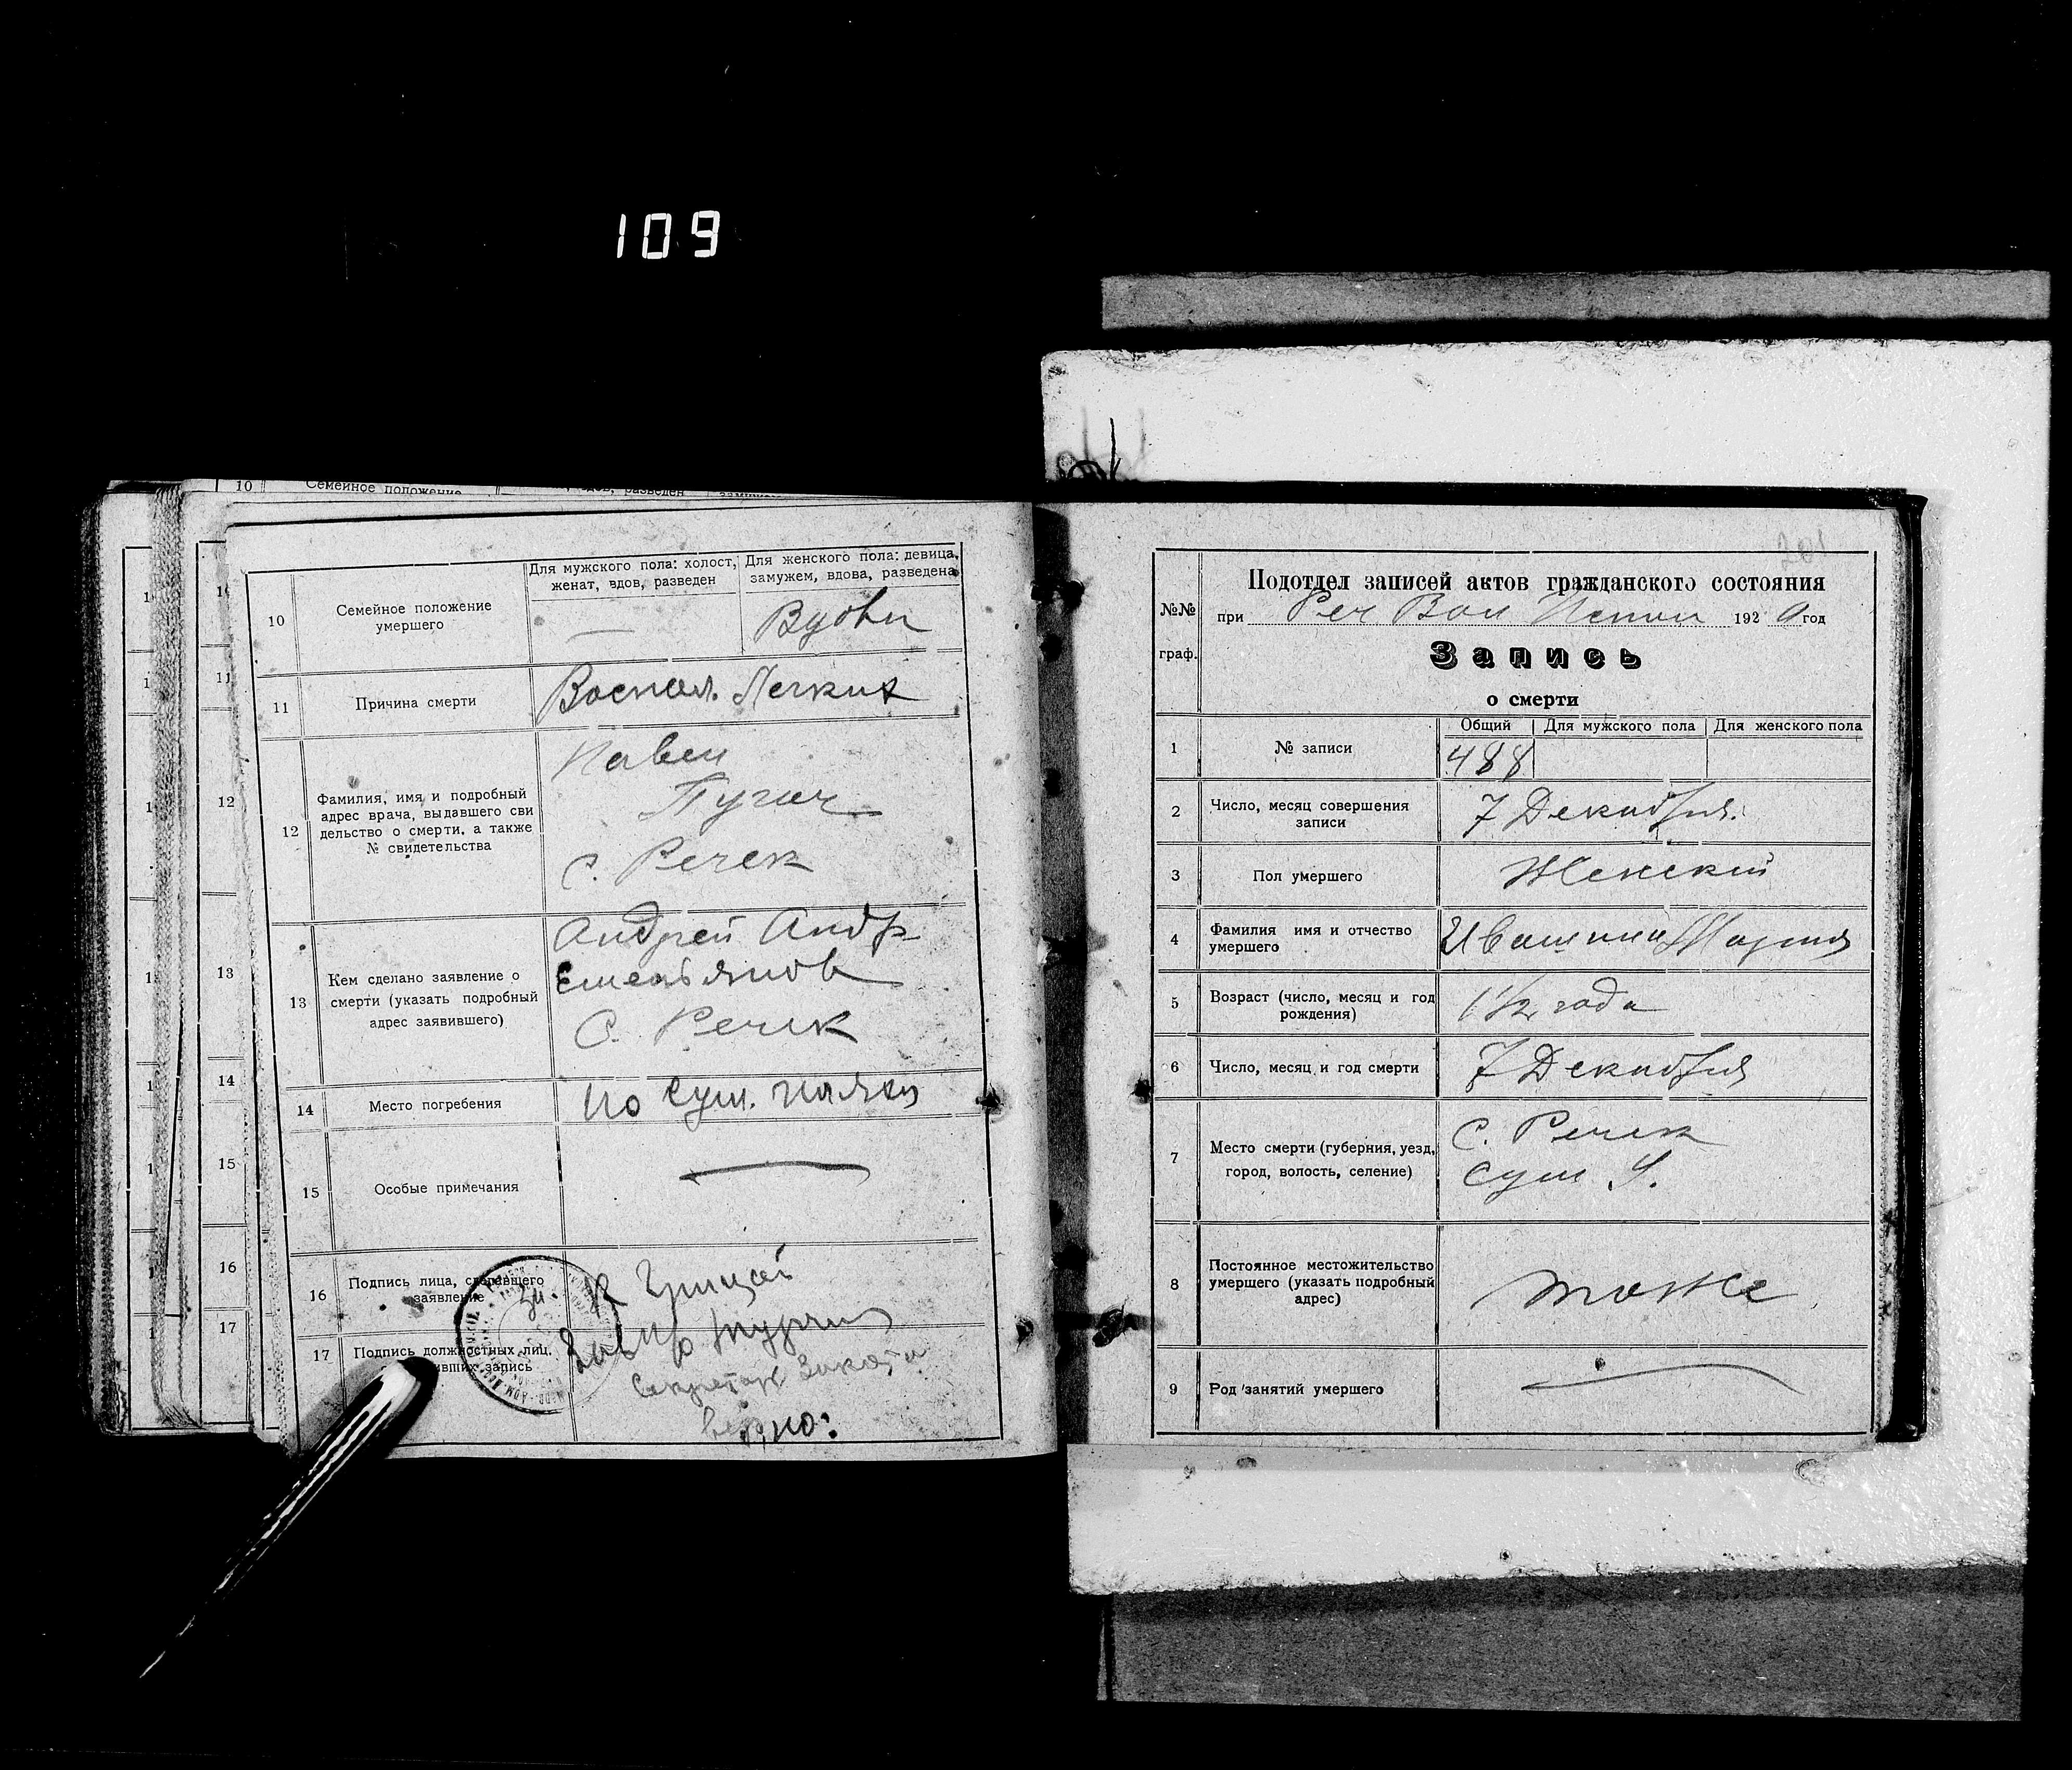 109
10 Семейное положение
10 Семейное положение умершего
Для мужского пола: холост, женат, вдов, разведен
Для женского пола: девица, замужем, вдова, разведена
— Вдова
11 Причина смерти
Воспал. Легких
12 Фамилия, имя и подробный
адрес врача, выдавшего сви
дельство о смерти, а также
№ свидетельства
Павел
Пугач
С. Речек
13 Кем сделано заявление о
смерти (указать подробный
адрес заявившего)
Андрей Андр
Емельянов
С. Речек
14 Место погребения
15 Особые примечания
—
16 Подпись лица, сделавшего
заявление
К Грицай
17 Подпись должностных лиц,
запись
Секретарь
верно:
12
13
14
15
16
17
201
№№
граф.
Подотдел записей актов гражданского состояния
при Реч Вол 192 год
Запись
о смерти
Общий Для мужского пола Для женского пола
1 № записи 488
2 Число, месяц совершения
записи
7 Декабря.
3 Пол умершего Женский
4 Фамилия имя и отчество
умершего
Мария
5 Возраст (число, месяц и год
рождения)
1 1/2 года
6 Число, месяц и год смерти 7 Декабря
7 Место смерти (губерния, уезд,
город, волость, селение)
С. Речек
Сум У.
8 Постоянное местожительство
умершего (указать подробный
адрес)
тоже
9 Род занятий умершего —